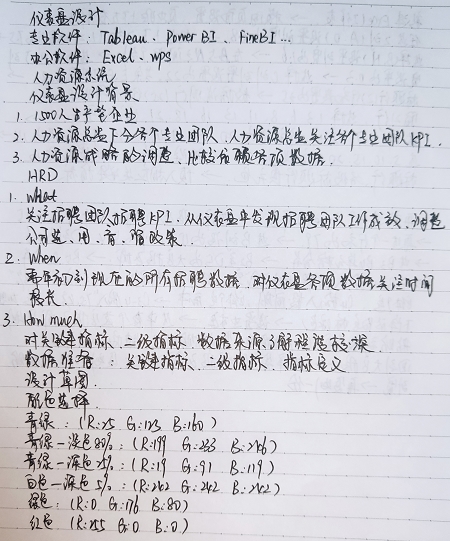 仪表盘设计
专业软件：Tableau、Power BI、FineBI...
办公软件：Excel、wps
人力资源
仪表盘设计背景
1. 1500人生产型企业
2. 人力资源总监下分各个专业团队，人力资源总监关注各个专业团队KPI.
3. 人力资源战略的调整、比较依赖各项数据.
HRD
1. what
关注招聘团队招聘KPI，从仪表盘中发现招聘团队工作成效，调整
公司选、用、育、留政策.
2. When
年初到现在的所有招聘数据，对仪表盘各项数据关注时间
较长.
3. How much
对关键指标、二级指标、数据来源了解程度较深
数据准备：关键指标、二级指标、指标定义
设计草图.
配色选择
青绿：(R:25 G:123 B:160)
青绿-浅色80%：(R:199 G:233 B:246)
青绿-深色25%：(R:19 G:91 B:119)
白色-深色5%：(R:242 G:242 B:242)
绿色：(R:0 G:176 B:80)
红色：(R:255 G:0 B:0)